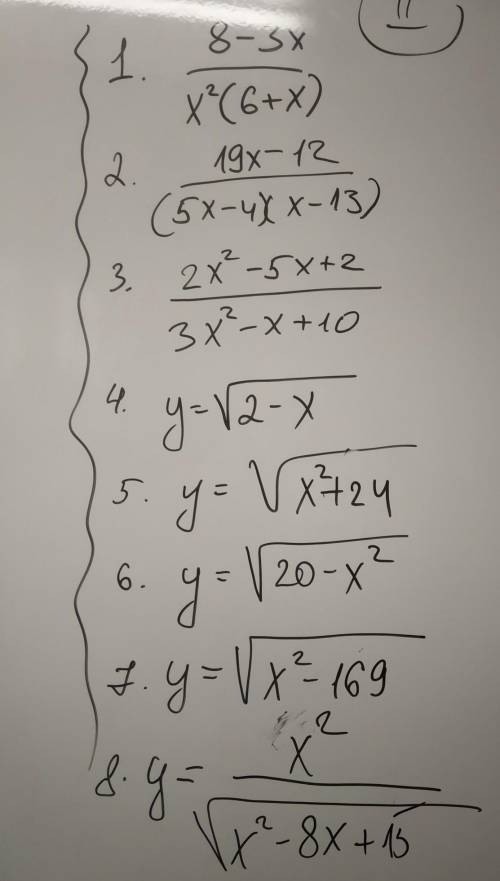 11
1. (8-3x)/(x²(6+x))
2. (19x-12)/((5x-4)(x-13))
3. (2x²-5x+2)/(3x²-x+10)
4. y=√(2-x)
5. y=√(x²+24)
6. y=√(20-x²)
7. y=√(x²-169)
8. y=x²/√(x²-8x+15)